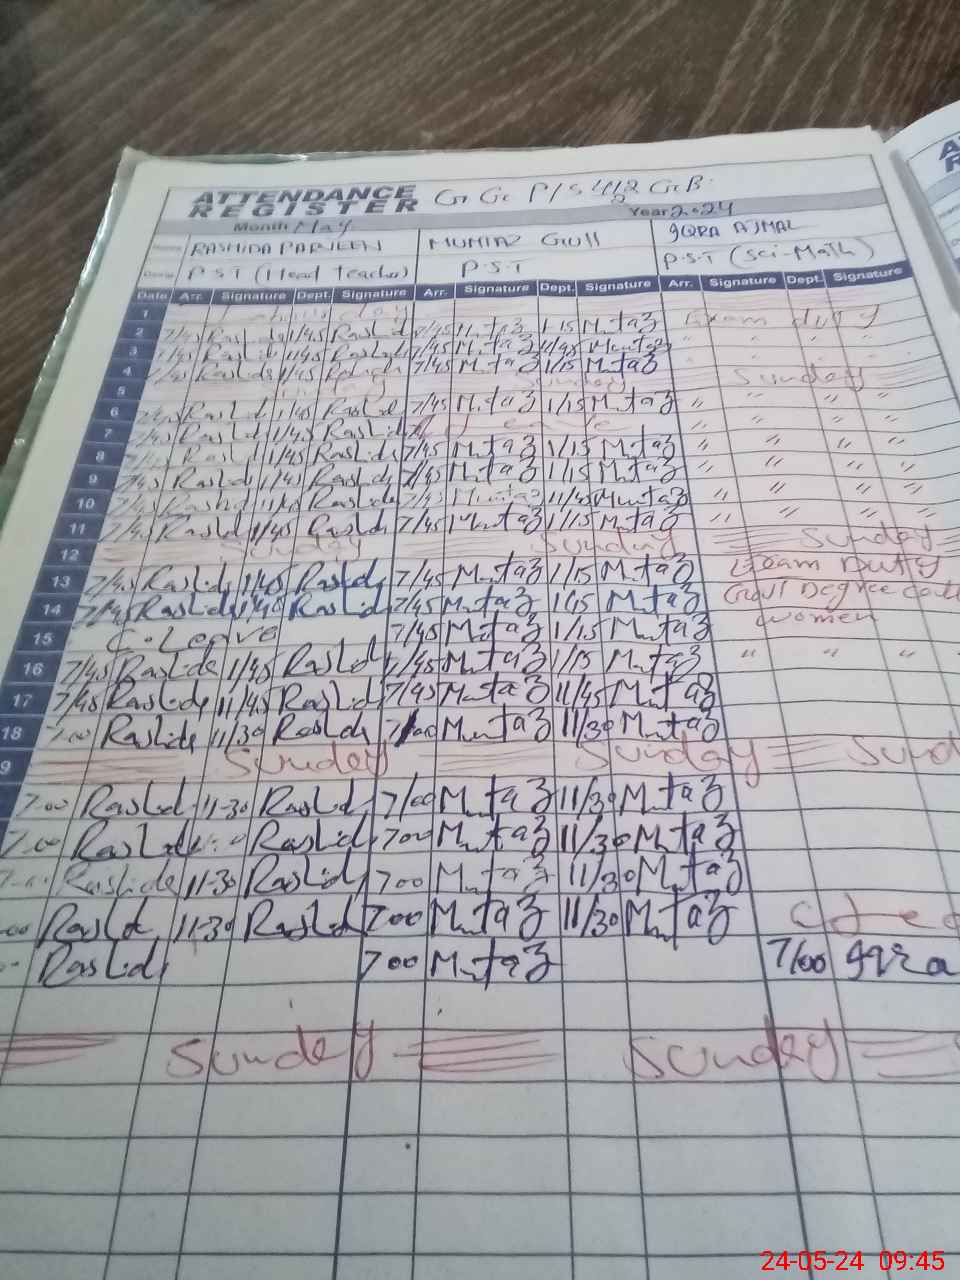 ATTENDANCE
REGISTER
G G P/S 412 G.B.
Month May Year 2024
Name RASHIDA PARVEEN MUMTAZ GULL IQRA AJMAL
P.S.T (Head teacher) P.S.T P.S.T (Sci-Math)
Date Arr. Signature Dept. Signature Arr. Signature Dept. Signature Arr. Signature Dept. Signature
1
2 7/45 Rashid 1/45 Rashid 7/45 Mumtaz 1-15 Mumtaz Exam duty
3 7/45 Rashid 11/45 Rashid 7/45 Mumtaz 11/45 Mumtaz " " "
4 7/45 Rashide 1/45 Rashid 7/45 Mumtaz 1/15 Mumtaz
5 Sunday Sunday Sunday
6 7/45 Rashid 1/45 Rashid 7/45 Mumtaz 1/15 Mumtaz " " " "
7 7/45 Rashid 1/45 Rashid " " " "
8 Rashid 1/45 Rashide 7/45 Mumtaz 1/15 Mumtaz " " " "
9 7/45 Rashid 1/45 Rashide 7/45 Mumtaz 1/15 Mumtaz " " " "
10 7/45 Rashid Rashide 7/45 Mumtaz 11/45 Mumtaz " " " "
11 7/45 Rashid 11/45 Rashid 7/45 Mumtaz 1/15 Mumtaz " " " "
12 Sunday Sunday Sunday
13 7/45 Rashide 1/45 Rashide 7/45 Mumtaz 1/15 Mumtaz Exam Duty
14 7/45 Rashide 1/45 Rashid 7/45 Mumtaz 1/15 Mumtaz Govt Degree
15 C. Leave 7/45 Mumtaz 1/15 Mumtaz women
16 7/45 Rashide 1/45 Rashid 7/45 Mumtaz 1/15 Mumtaz " " " "
17 7/45 Rashide 11/45 Rashid 7/45 Mumtaz 11/45 Mumtaz
18 7.00 Rashide 11/30 Rashide 7/00 Mumtaz 11/30 Mumtaz
9 Sunday Sunday Sund
7.00 Rashid 11-30 Rashid 7/00 Mumtaz 11/30 Mumtaz
7.00 Rashid Rashid 700 Mumtaz 11/30 Mumtaz
Rashide 11-30 Rashid 700 Mumtaz 11/30 Mumtaz
00 Rashid 11-30 Rashid 700 Mumtaz 11/30 Mumtaz
Rashid 700 Mumtaz 7/00 Iqra
Sunday Sunday
24-05-24 09:45